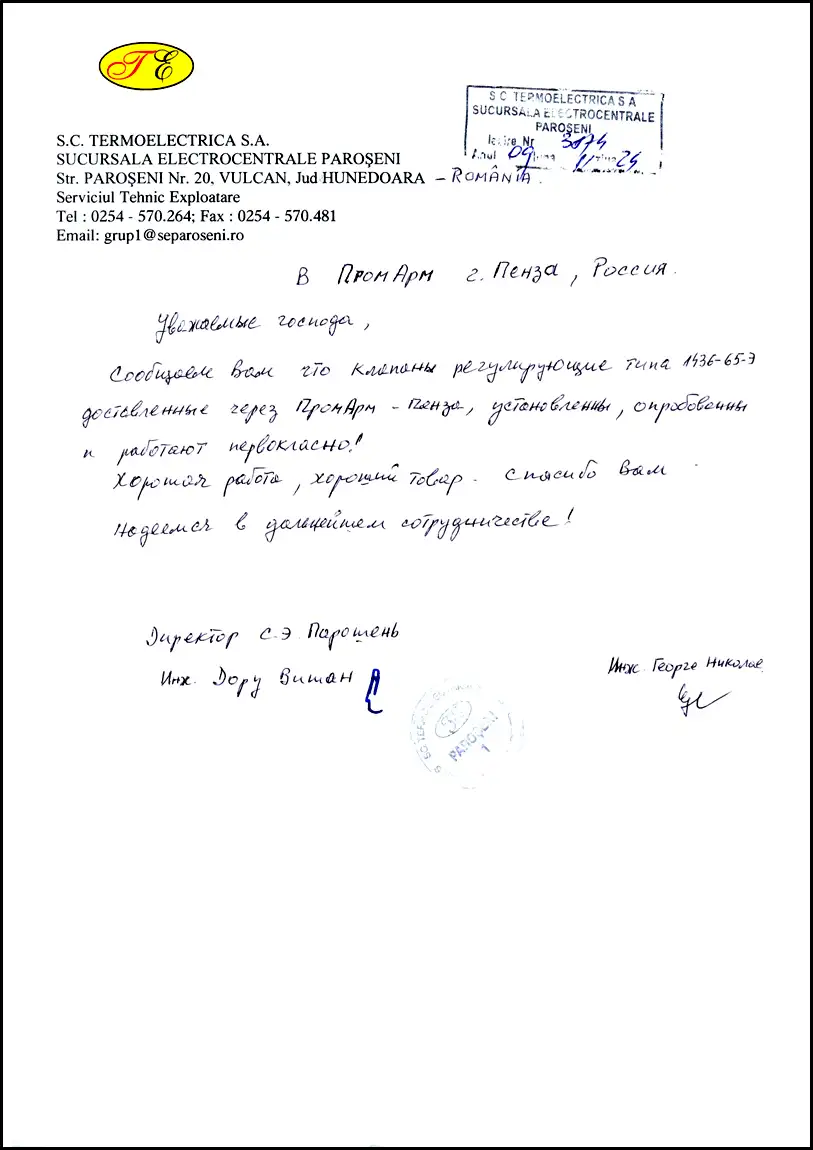 TE
S.C. TERMOELECTRICA S.A.
SUCURSALA ELECTROCENTRALE PAROŞENI
Str. PAROŞENI Nr. 20, VULCAN, Jud HUNEDOARA – ROMÂNIA.
Serviciul Tehnic Exploatare
Tel : 0254 - 570.264; Fax : 0254 - 570.481
Email: grup1@separoseni.ro
S C TERMOELECTRICA S A
SUCURSALA ELECTROCENTRALE
PAROŞENI
Ieşire Nr 3174
Anul 09 Luna 11 Ziua 24
В ПромАрм г. Пенза, Россия.
Уважаемые господа,
Сообщаем Вам что клапаны регулирующие типа 1436-65-Э
доставленные через ПромАрм - Пенза, установленны, опробованны
и работают первокласно!
Хорошая работа, хороший товар. Спасибо Вам.
Надеемся в дальнейшем сотрудничестве!
Директор С.Э. Парошень
Инж. Дору Вишан
Инж. Георге Николае
PAROŞENI
1